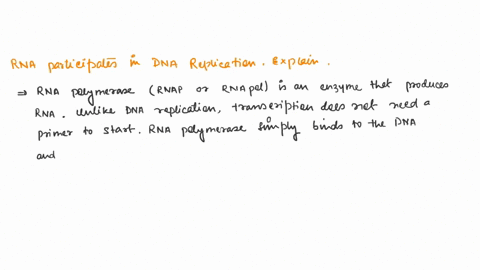 RNA participates in DNA Replication. Explain.
⇒ RNA polymerase (RNAP or RNA pol) is an enzyme that produces
RNA. Unlike DNA replication, transcription does not need a
primer to start. RNA polymerase simply binds to the DNA
and